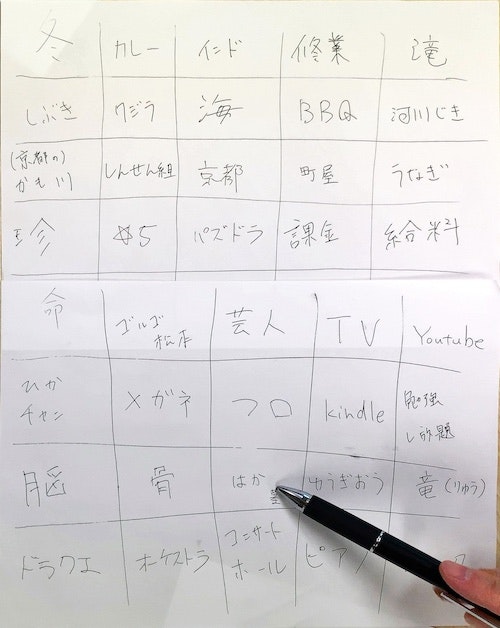 冬 カレー インド 修業 滝
しぶき クジラ 海 BBQ 河川じき
(京都の)
かも川 しんせん組 京都 町屋 うなぎ
☆5 パズドラ 課金 給料
命 ゴルゴ
松本 芸人 TV Youtube
ひか
チャン メガネ フロ kindle 勉強
し放題
脳 骨 はか ゆうぎおう 竜(りゅう)
ドラクエ オーケストラ コンサート
ホール ピアノ